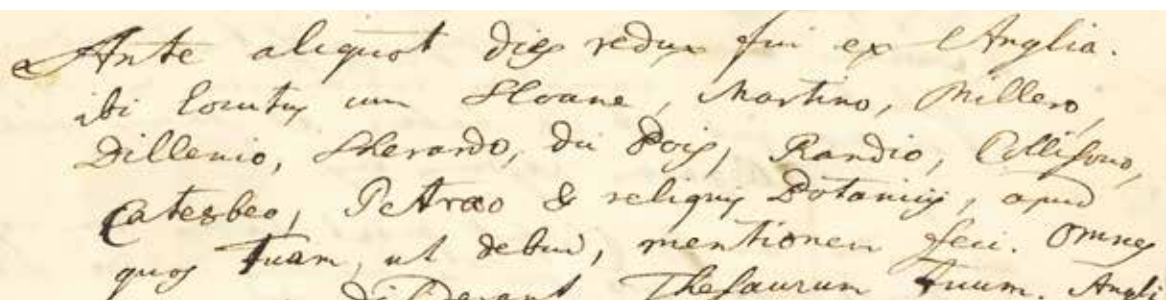 Ante aliquot dies redux fui ex Anglia.
ibi locutus cum Sloane, Martino, Millero,
Dillenio, Sherardo, du Bois, Randio, Collisono,
Catesbeo, Petræo & reliquis Botanicis, apud
quos tuam, ut debui, mentionem feci. Omnes
Thesaurum tuum. Angli